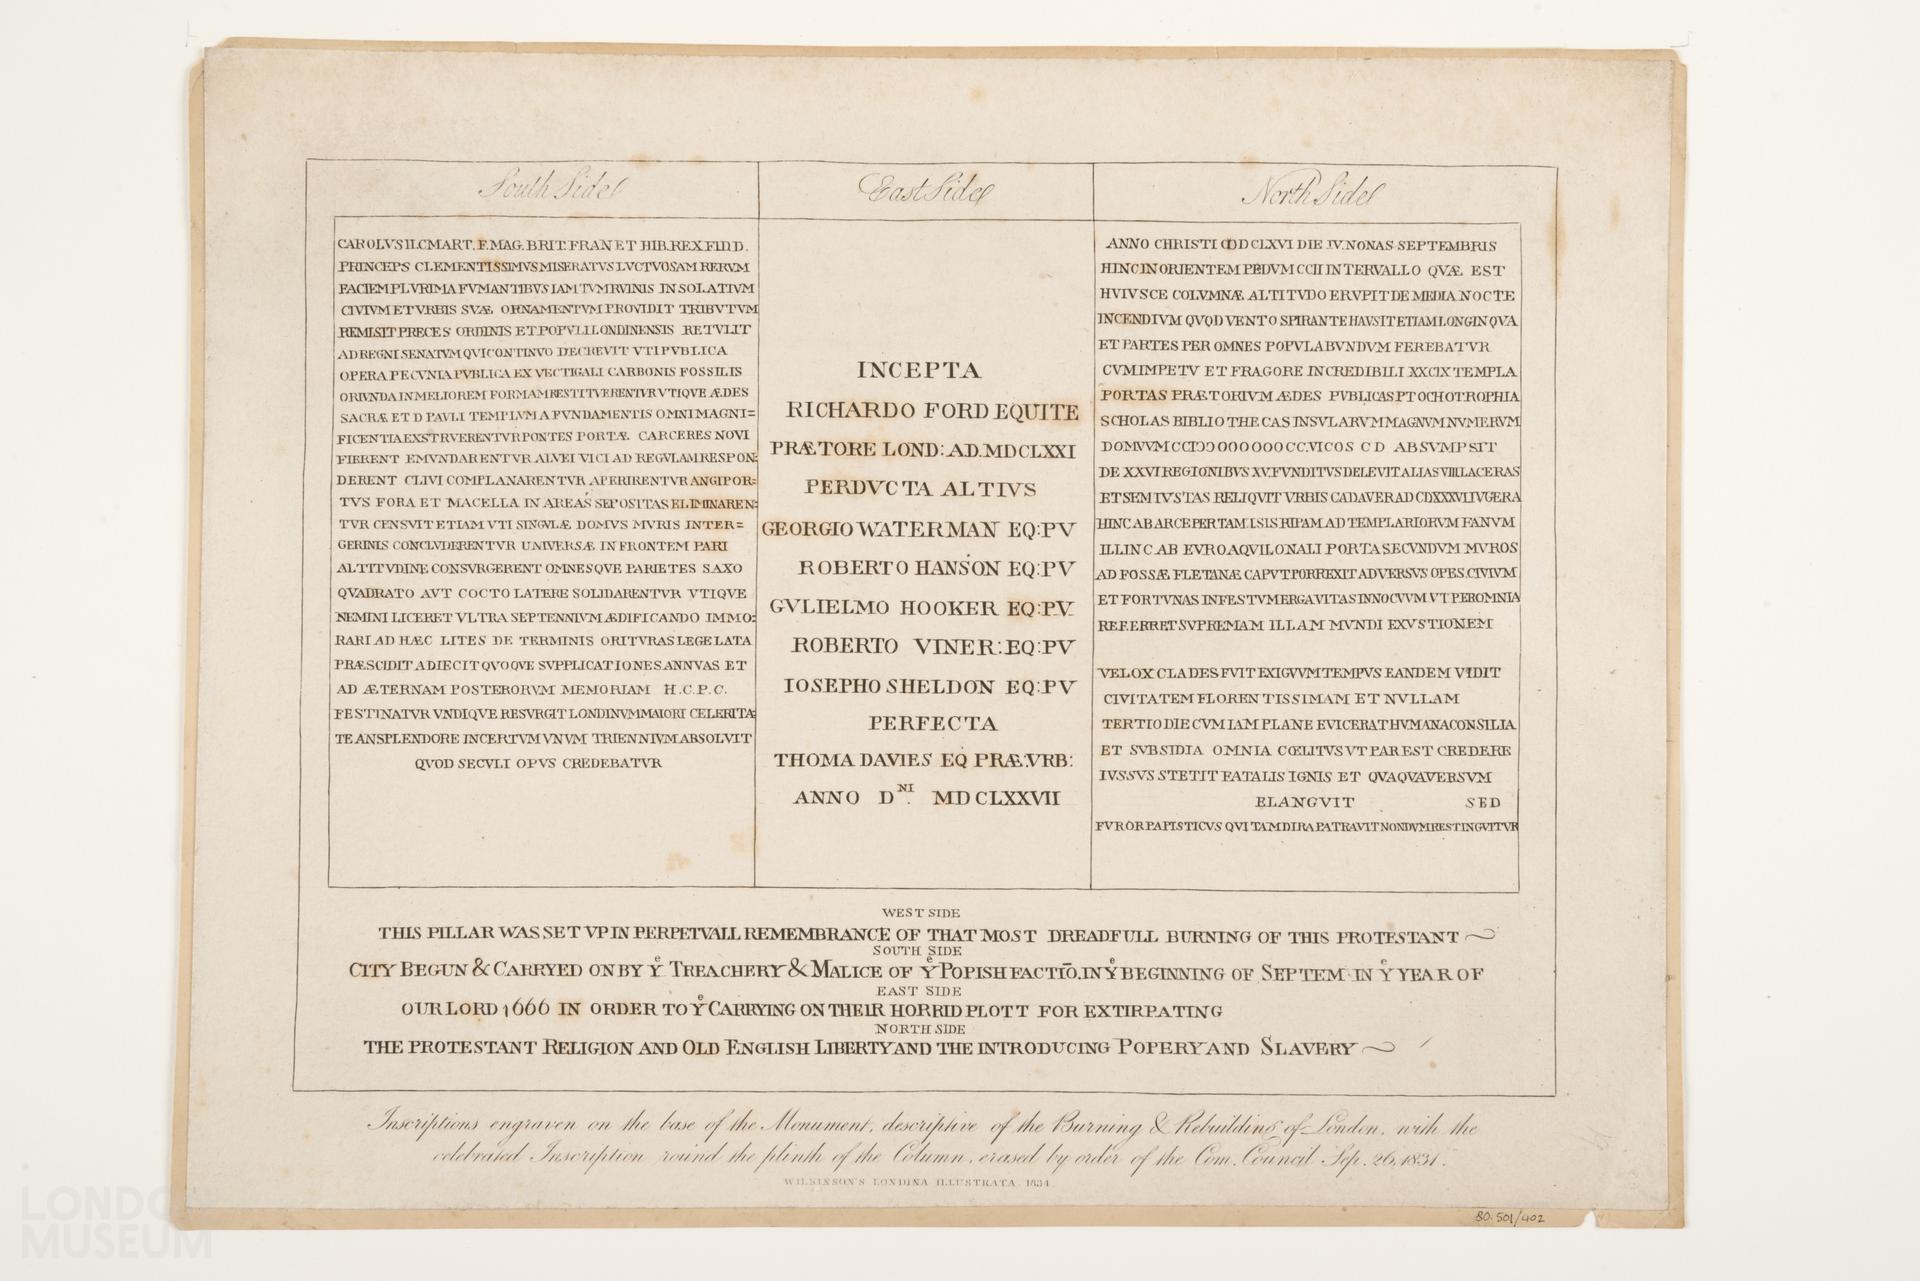 South Side
CAROLVS II.C MART. F. MAG. BRIT. FRAN ET HIB. REX FID D.
PRINCEPS CLEMENTISSIMVS MISERATVS LVCTVOSAM RERVM
FACIEM PLVRIMA FVMANTIBVS IAM TVM RVINIS IN SOLATIVM
CIVIVM ET VRBIS SVÆ ORNAMENTVM PROVIDIT TRIBVTVM
REMISIT PRECES ORDINIS ET POPVLI LONDINENSIS RETVLIT
AD REGNI SENATVM QVI CONTINVO DECREVIT VTI PVBLICA
OPERA PECVNIA PVBLICA EX VECTIGALI CARBONIS FOSSILIS
ORIVNDA IN MELIOREM FORMAM RESTITVERENTVR VTIQVE ÆDES
SACRÆ ET D PAVLI TEMPLVM A FVNDAMENTIS OMNI MAGNI=
FICENTIA EXSTRVERENTVR PONTES PORTÆ. CARCERES NOVI
FIERENT EMVNDARENTVR ALVEI VICI AD REGVLAM RESPON=
DERENT CLIVI COMPLANARENTVR APERIRENTVR ANGIPOR=
TVS FORA ET MACELLA IN AREAS SEPOSITAS ELIMINAREN=
TVR CENSVIT ETIAM VTI SINGVLÆ DOMVS MVRIS INTER=
GERINIS CONCLVDERENTVR UNIVERSÆ IN FRONTEM PARI
ALTITVDINE CONSVRGERENT OMNESQVE PARIETES SAXO
QVADRATO AVT COCTO LATERE SOLIDARENTVR VTIQVE
NEMINI LICERET VLTRA SEPTENNIVM ÆDIFICANDO IMMO=
RARI AD HÆC LITES DE TERMINIS ORITVRAS LEGE LATA
PRÆSCIDIT ADIECIT QVOQVE SVPPLICATIONES ANNVAS ET
AD ÆTERNAM POSTERORVM MEMORIAM H.C.P.C.
FESTINATVR VNDIQVE RESVRGIT LONDINVM MAIORI CELERITA=
TE AN SPLENDORE INCERTVM VNVM TRIENNIVM ABSOLVIT
QVOD SECVLI OPVS CREDEBATVR
East Side
INCEPTA
RICHARDO FORD EQUITE
PRÆTORE LOND: AD. MDCLXXI
PERDVCTA ALTIVS
GEORGIO WATERMAN EQ: PV
ROBERTO HANSON EQ: PV
GVLIELMO HOOKER EQ: PV
ROBERTO VINER: EQ: PV
IOSEPHO SHELDON EQ: PV
PERFECTA
THOMA DAVIES EQ PRÆ: VRB:
ANNO D.NI MDCLXXVII
North Side
ANNO CHRISTI CIƆDCLXVI DIE IV. NONAS SEPTEMBRIS
HINC IN ORIENTEM PEDVM CCII INTERVALLO QVÆ EST
HVIVSCE COLVMNÆ ALTITVDO ERVPIT DE MEDIA NOCTE
INCENDIVM QVOD VENTO SPIRANTE HAVSIT ETIAM LONGINQVA
ET PARTES PER OMNES POPVLABVNDVM FEREBATVR
CVM IMPETV ET FRAGORE INCREDIBILI XXCIX TEMPLA
PORTAS PRÆTORIVM ÆDES PVBLICAS PTOCHOTROPHIA
SCHOLAS BIBLIOTHECAS INSVLARVM MAGNVM NVMERVM
DOMVVM CCIƆƆ OOOOOOO CC. VICOS CD ABSVMPSIT
DE XXVI REGIONIBVS XV. FVNDITVS DELEVIT ALIAS VIII. LACERAS
ET SEMIVSTAS RELIQVIT VRBIS CADAVER AD CDXXXVI IVGERA
HINC AB ARCE PER TAMISIS RIPAM AD TEMPLARIORVM FANVM
ILLINC AB EVRO AQVILONALI PORTA SECVNDVM MVROS
AD FOSSÆ FLETANÆ CAPVT PORREXIT ADVERSVS OPES. CIVIVM
ET FORTVNAS INFESTVM ERGA VITAS INNOCVVM VT PER OMNIA
REFERRET SVPREMAM ILLAM MVNDI EXVSTIONEM
VELOX CLADES FVIT EXIGVVM TEMPVS EANDEM VIDIT
CIVITATEM FLORENTISSIMAM ET NVLLAM
TERTIO DIE CVM IAM PLANE EVICERAT HVMANA CONSILIA
ET SVBSIDIA OMNIA CŒLITVS VT PAR EST CREDERE
IVSSVS STETIT FATALIS IGNIS ET QVAQVAVERSVM
ELANGVIT SED
FVROR PAPISTICVS QVI TAM DIRA PATRAVIT NONDVM RESTINGVITVR
WEST SIDE
THIS PILLAR WAS SET VP IN PERPETVALL REMEMBRANCE OF THAT MOST DREADFULL BURNING OF THIS PROTESTANT
SOUTH SIDE
CITY BEGUN & CARRYED ON BY Ye TREACHERY & MALICE OF Ye POPISH FACTIŌ. IN Ye BEGINNING OF SEPTEM. IN Ye YEAR OF
EAST SIDE
OUR LORD 1666 IN ORDER TO Ye CARRYING ON THEIR HORRID PLOTT FOR EXTIRPATING
NORTH SIDE
THE PROTESTANT RELIGION AND OLD ENGLISH LIBERTY AND THE INTRODUCING POPERY AND SLAVERY
Inscriptions engraven on the base of the Monument, descriptive of the Burning & Rebuilding of London, with the
celebrated Inscription round the plinth of the Column, erased by order of the Com. Council Sep. 26, 1831.
WILKINSON'S LONDINA ILLUSTRATA. 1834.
80.501/902
LONDON
MUSEUM